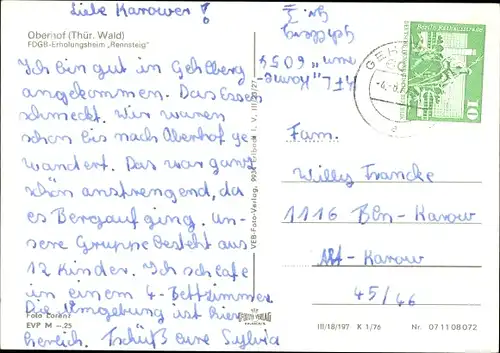 Liebe Karower!
Oberhof (Thür. Wald)
FDGB-Erholungsheim „Rennsteig"
Ich bin gut in Gehlberg
angekommen. Das Essen
schmeckt. Wir waren
schon bis nach Oberhof ge
wandert. Das war ganz
schön anstrengend, da
es Bergauf ging. Un-
sere Gruppe besteht aus
12 Kinder. Ich schlafe
in einem 4-Bettzimmer.
Die Umgebung ist hier
herrlich. Tschüß eure Sylvia
Foto Lorenz
EVP M -.25
VEB-Foto-Verlag, I, V, III/28/27
6054
Gehlberg
GEH
10
Fam.
Willy Francke
1116 Bln-Karow
Alt-Karow
45/46
III/18/197 K 1/76 Nr. 07 11 08 072